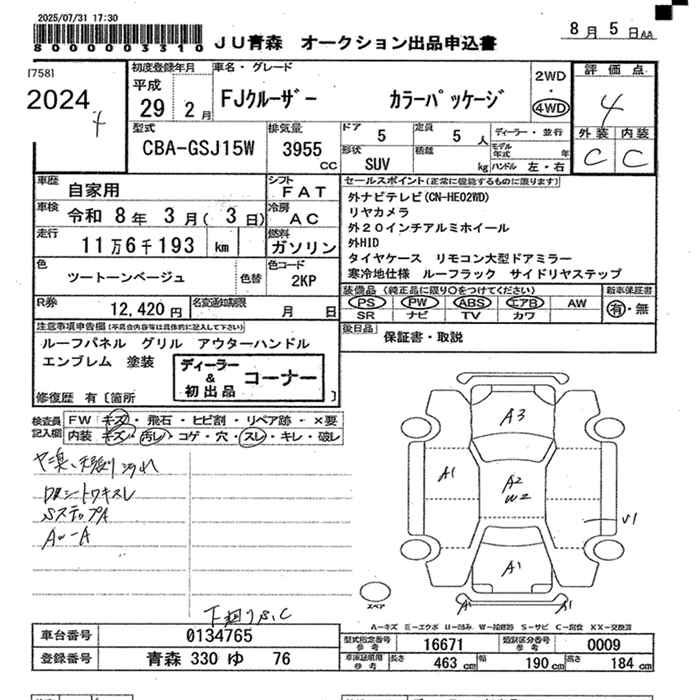 2025/07/31 17:30
8000000003310
JU青森 オークション出品申込書
8月 5日AA
[7581
2024
4
初度登録年月
平成
29 2月
車名・グレード
FJクルーザー カラーパッケージ
2WD
・
4WD
評価点
4
外装 内装
C C
型式
CBA-GSJ15W
排気量
3955
CC
ドア 5
定員 5人
ディーラー・並行
形状
SUV
積載
kg
モデル年式 年
ハンドル 左・右
車歴 自家用
シフト FAT
車検 令和 8年 3月( 3日)
冷房 AC
走行 11万6千193 km
燃料 ガソリン
色 ツートーンベージュ 色替
色コード 2KP
R券 12,420円
名変通知期限 月 日
セールスポイント(正常に機能するものに限ります)
外ナビテレビ(CN-HE02WD)
リヤカメラ
外20インチアルミホイール
外HID
タイヤケース リモコン大型ドアミラー
寒冷地仕様 ルーフラック サイドリヤステップ
装備品 (純正品に限り○をつけてください)
PS PW ABS エアB AW
SR ナビ TV カワ
新車保証書
有・無
後日品 保証書・取説
注意事項申告欄(不具合内容等は具体的に記入して下さい)
ルーフパネル グリル アウターハンドル
エンブレム 塗装
ディーラー
&
初出品
コーナー
修復歴 有〔箇所 〕
検査員
記入欄
FW キズ・飛石・ヒビ割・リペア跡・×要
内装 キズ・汚レ・コゲ・穴・スレ・キレ・破レ
ヤニ臭、天張り汚れ
DRシートワキスレ
SステップA
Aw-A
下廻りS、C
A3
A1
A2
W2
V1
A1
A1 A1
スペア
A-キズ E-エクボ U-凹み W-補修跡 S-サビ C-腐食 XX-交換済
車台番号 0134765
登録番号 青森 330 ゆ 76
型式指定番号 参考 16671
類別区分番号 参考 0009
車庫証明用 参考 長さ 463 cm 幅 190 cm 高さ 184 cm